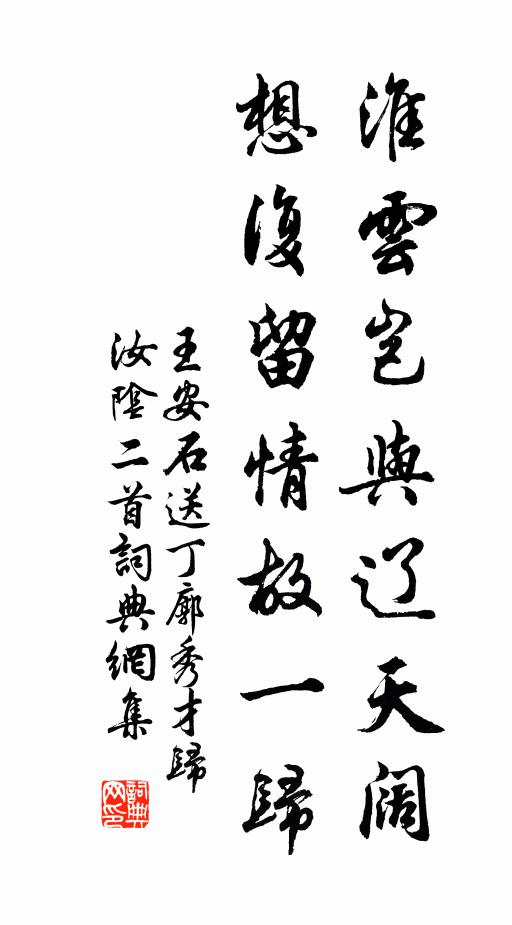 淮雲豈與辽天阔
想復留情故一歸
王安石送丁廓秀才歸
汝陰二首詞典網集
詞典
网印